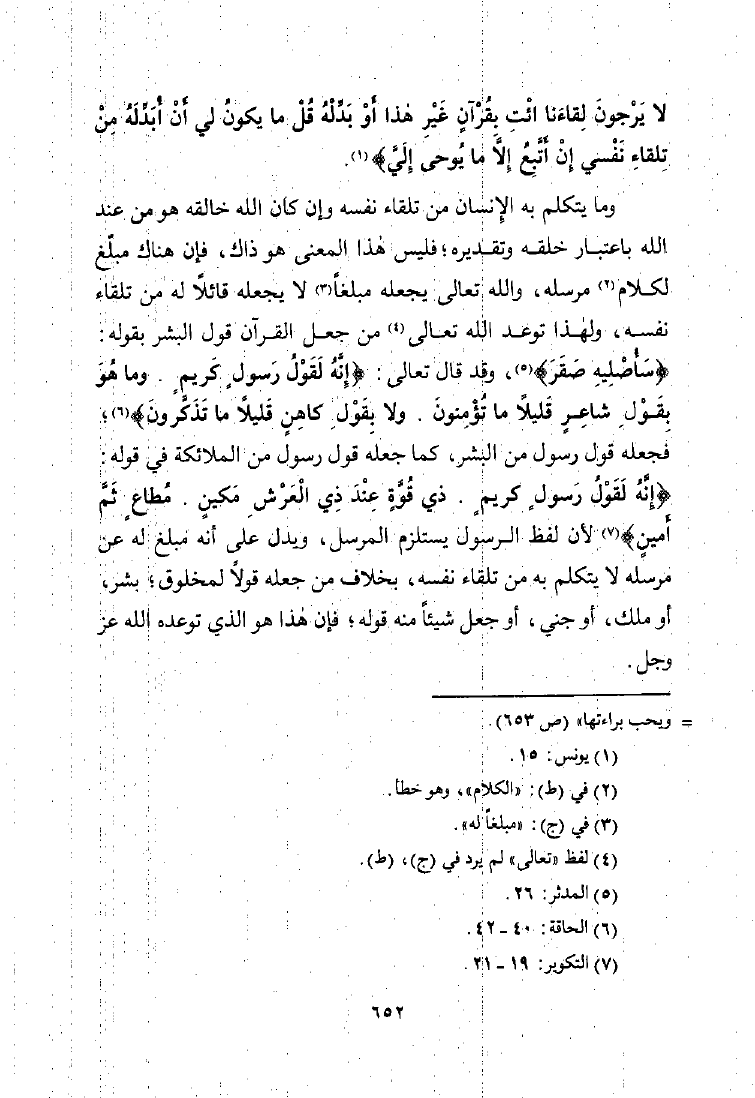 لا يَرْجونَ لِقاءَنا ائْتِ بِقُرْآنٍ غَيْرِ هٰذا أَوْ بَدِّلْهُ قُلْ ما يكونُ لي أَنْ أُبَدِّلَهُ مِنْ
تِلقاءِ نَفْسي إِنْ أَتَّبِعُ إِلَّا ما يُوحى إِلَيَّ﴾(١).
وما يتكلم به الإِنسان من تلقاء نفسه وإن كان الله خالقه هو من عند
الله باعتبار خلقه وتقديره؛ فليس هٰذا المعنى هو ذاك، فإن هناك مبلّغ
لكلام(٢) مرسله، والله تعالى يجعله مبلغاً(٣) لا يجعله قائلًا له من تلقاء
نفسه، ولهٰذا توعد الله تعالى(٤) من جعل القرآن قول البشر بقوله:
﴿سَأُصْلِيهِ صَقَرَ﴾(٥)، وقد قال تعالى: ﴿إِنَّهُ لَقَوْلُ رَسولٍ كَريمٍ . وما هُوَ
بِقَوْلِ شاعرٍ قَليلًا ما تُؤْمِنونَ . ولا بِقَوْلِ كاهِنٍ قَليلًا ما تَذَكَّرونَ﴾(٦)؛
فجعله قول رسول من البشر، كما جعله قول رسول من الملائكة في قوله:
﴿إِنَّهُ لَقَوْلُ رَسولٍ كريمٍ . ذي قُوَّةٍ عِنْدَ ذِي الْعَرْشِ مَكينٍ . مُطاعٍ ثَمَّ
أَمينٍ﴾(٧) لأن لفظ الرسول يستلزم المرسل، ويدل على أنه مبلغ له عن
مرسله لا يتكلم به من تلقاء نفسه، بخلاف من جعله قولاً لمخلوق؛ بشر،
أو ملك، أو جني، أو جعل شيئاً منه قوله؛ فإن هٰذا هو الذي توعده الله عز
وجل.
= ويحب براءتها» (ص ٦٥٣).
(١) يونس: ١٥.
(٢) في (ط): «الكلام»، وهو خطأ.
(٣) في (ج): «مبلغاً له».
(٤) لفظ «تعالى» لم يرد في (ج)، (ط).
(٥) المدثر: ٢٦.
(٦) الحاقة: ٤٠ ـ ٤٢.
(٧) التكوير: ١٩ ـ ٢١.
٦٥٢